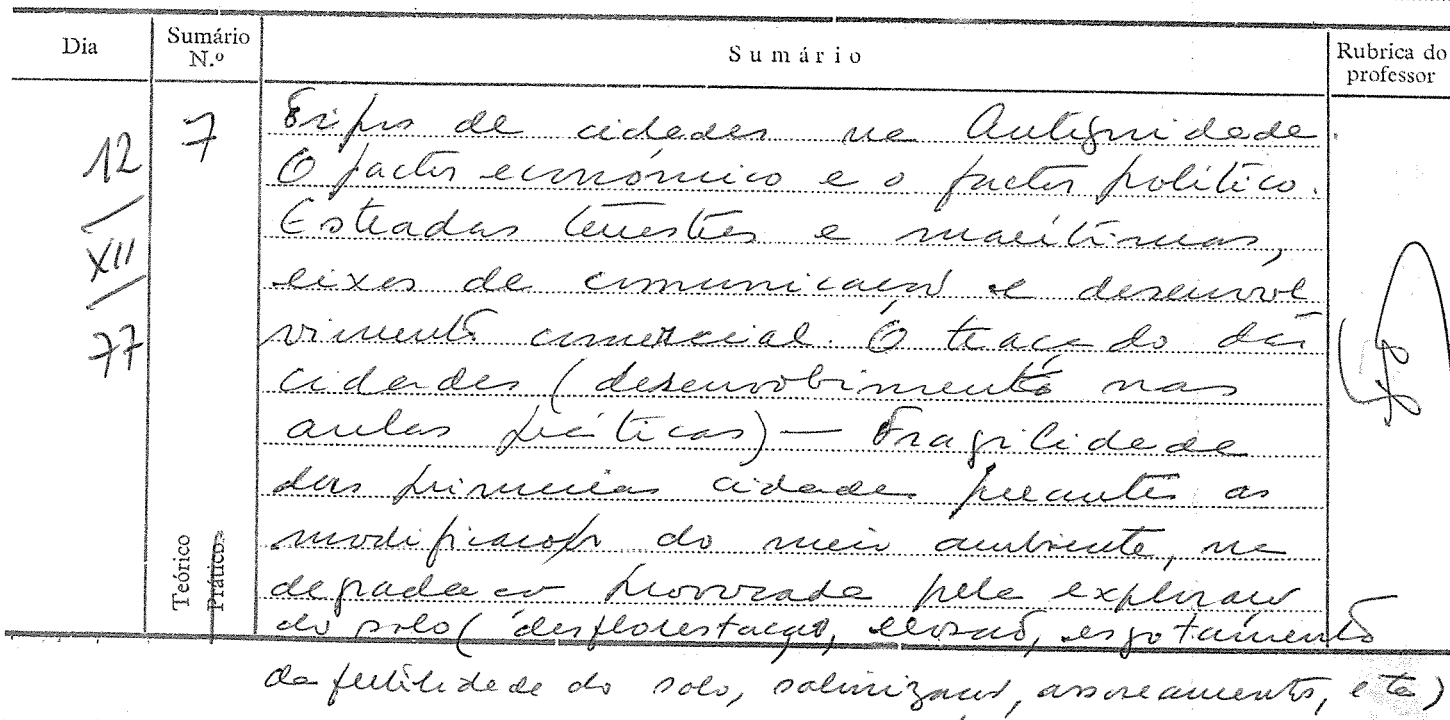 Dia
Sumário N.º
Sumário
Rubrica do professor
12
XII
77
7
Teórico
Prático
Tipos de cidades na Antiguidade.
O factor económico e o factor político.
Estradas terrestres e marítimas,
eixos de comunicação e desenvol
vimento comercial. O traçado das
cidades (desenvolvimento nas
aulas práticas) — Fragilidade
das primeiras cidades perante as
modificações do meio ambiente, na
degradação provocada pela exploração
do solo (desflorestação, erosão, esgotamento
da fertilidade do solo, salinização, assoreamento, etc)